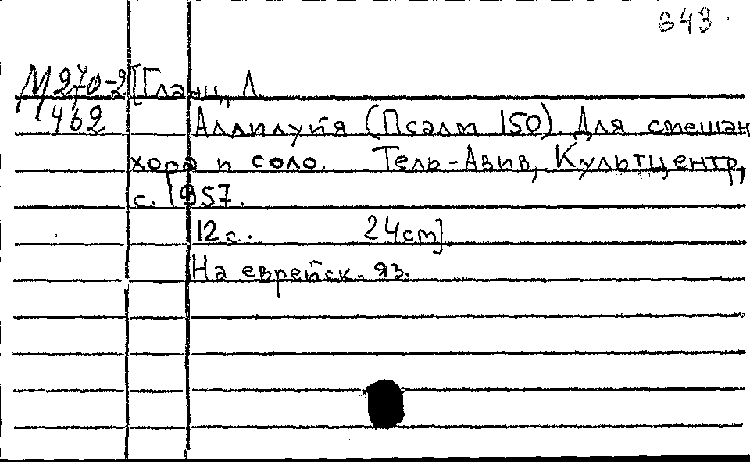 843
М270-2 [Гланц, Л.
462 Аллилуйя (Псалм 150). Для смешан
хора и соло. Тель-Авив, Культцентр,
с. 1957.
12с. 24см]
На еврейск. яз.